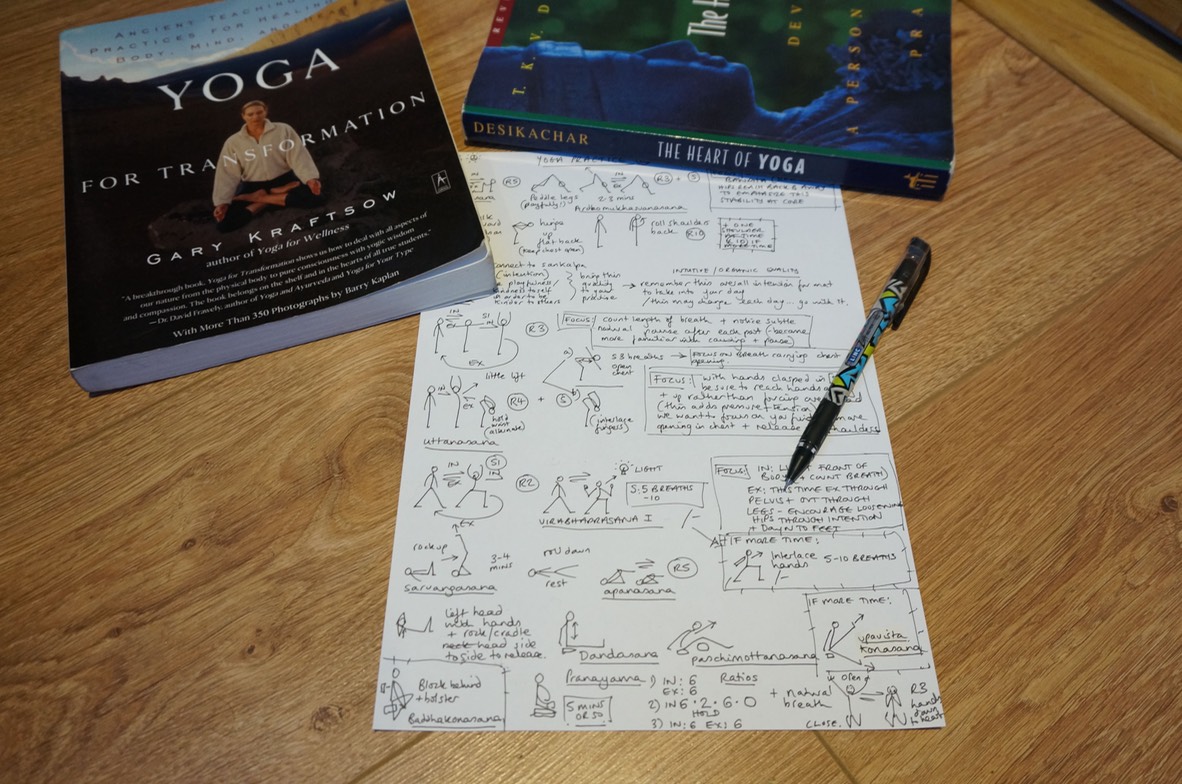 ANCIENT TEACHINGS
PRACTICES FOR HEALING
BODY, MIND, AND
YOGA
FOR TRANSFORMATION
GARY KRAFTSOW
author of Yoga for Wellness
"A breakthrough book. Yoga for Transformation shows us how to deal with all aspects of
our nature from the physical body to pure consciousness with yogic wisdom
and compassion. The book belongs on the shelf and in the hearts of all true students."
—Dr. David Frawley, author of Yoga and Ayurveda and Yoga for Your Type
With More Than 350 Photographs by Barry Kaplan
REV
T. K. V. D
The H
DEV
A PERSON
PRA
DESIKACHAR
THE HEART OF YOGA
YOGA
IN
R5
Paddle legs
(playfully)
IN
EX
2-3 mins
R3 + 5
Ardhomukhasvanasana
TO EMPHASIZE THIS
STABILITY AT CORE
hinge
up
flat back
(keep chest open)
roll shoulders
back
R10
+ ONE
SHOULDER
MORE TIME
connect to sankalpa
(intention)
playfulness
kindness to self
in order to be
kinder to others
bring this
quality
to your
practice
→ remember this overall intention for mat
to take into your day
/this may change each day... go with it.
INTUITIVE/ORGANIC QUALITY
IN
EX
SI
IN
EX
R3
FOCUS: count length of breath + notice subtle
natural pause after each part (-become
more familiar with counting + pause)
a)
5 8 breaths
open
chest
→ FOCUS ON BREATH carrying chest
opening
IN
EX
little lift
R4
hold
waist
(alternate)
+ 5
(interlace
fingers)
uttanasana
FOCUS: with hands clasped in
be sure to reach hands
+ up rather than forcing
(this adds pressure + tension)
we want to focus on
opening in chest + release shoulders
IN
EX
SI
IN
EX
R2
LIGHT
S: 5 BREATHS
-10
VIRABHADRASANA I
FOCUS: IN: FRONT OF
BODY + COUNT BREATH)
EX: THIS TIME EX THROUGH
PELVIS + OUT THROUGH
LEGS - ENCOURAGE LOOSENING
HIPS THROUGH INTENTION
+ DOWN TO FEET
IF MORE TIME:
Interlace
hands
5-10 BREATHS
rock up
3-4
mins
sarvangasana
roll down
rest
apanasana
R5
left head
with hands
+ rock/cradle
neck head side
to side to release.
Dandasana
paschimottanasana
IF MORE TIME:
upavista
konasana
Block behind
+ bolster
Baddhakonasana
Pranayama
5 MINS
OR SO
Ratios
1) IN: 6
EX: 6
2) IN 6 · 2 · 6 · 0
HOLD
3) IN: 6 EX: 6
+ natural
breath
open
CLOSE.
R3
hands
down
heart